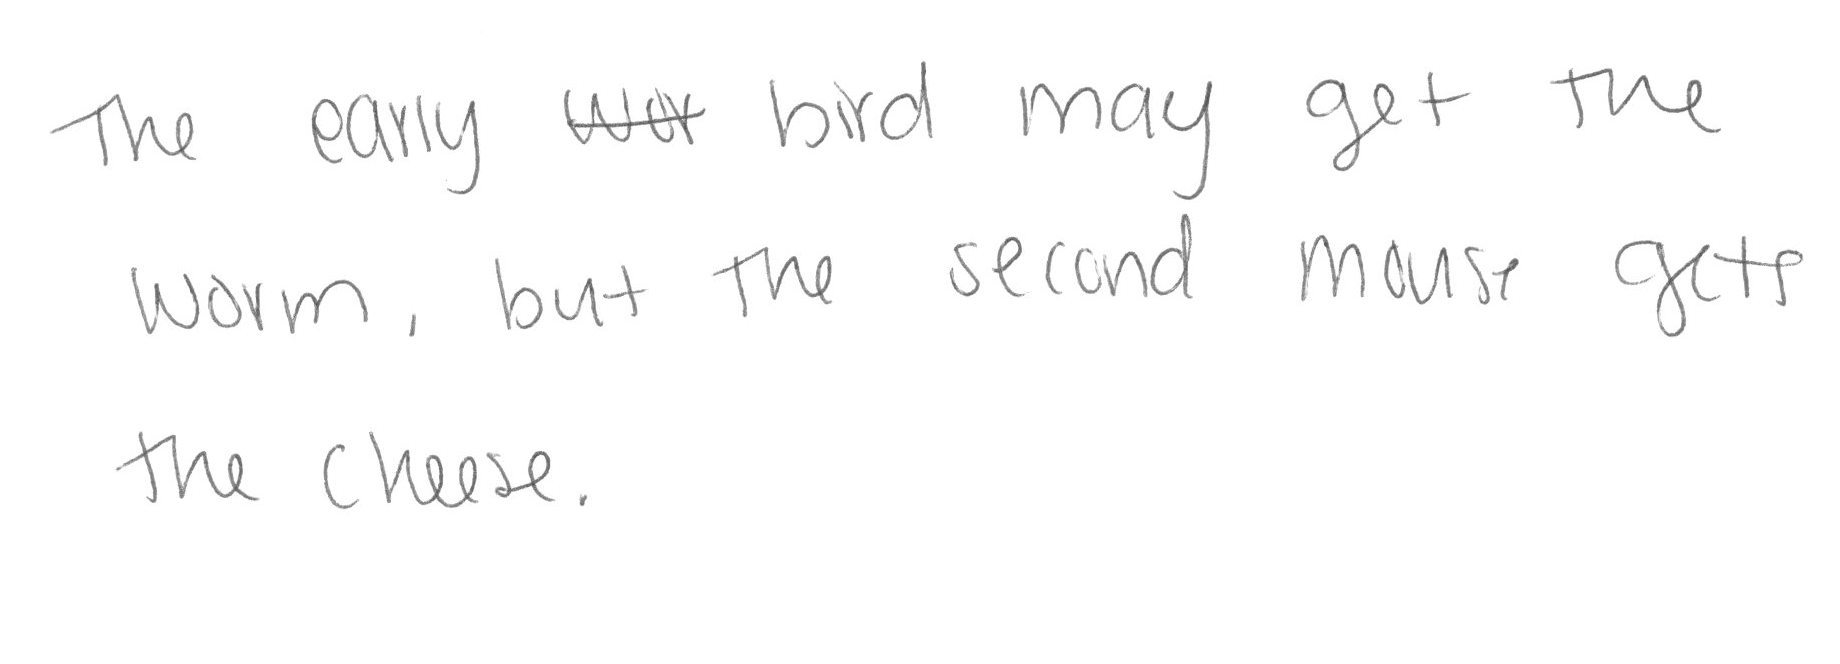 The early wor bird may get the
worm, but the second mouse gets
the cheese.